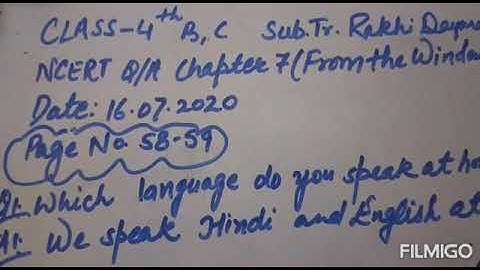 CLASS-4th B, C Sub.Tr. Rakhi
NCERT Q/A Chapter 7 (From the Window
Date: 16.07.2020
Page No. 58-59
Q1. Which language do you speak at
A1. We speak Hindi and English at
FILMIGO